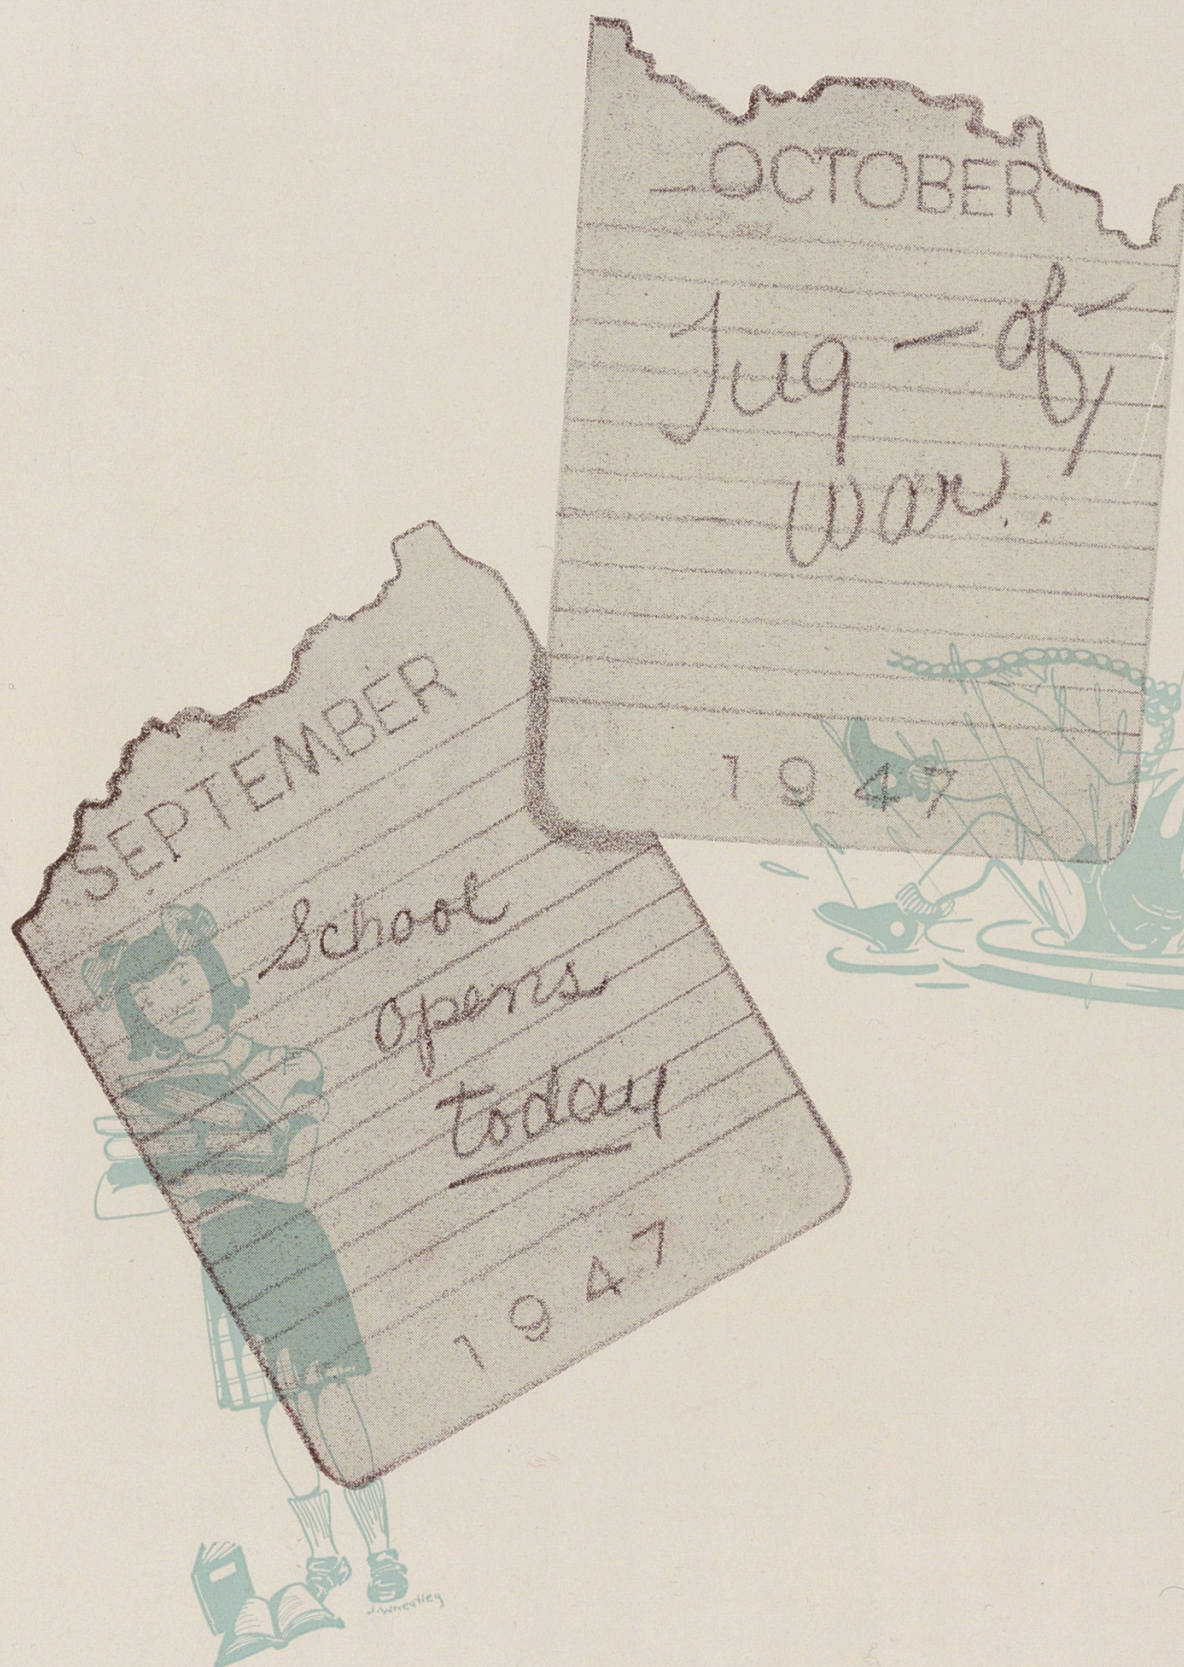 OCTOBER
Tug-of-
war!!
1947
SEPTEMBER
School
opens
today
1947
J. Wheatley